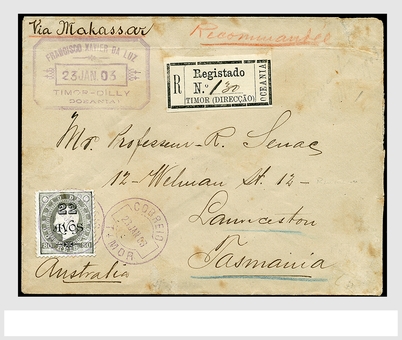 Via Makassar
Recommandée
FRANCISCO XAVIER DA LUZ
23 JAN 03
TIMOR-DILLY
OCEANIA
R
Registado
N.º 130
TIMOR (DIRECÇÃO)
OCEANIA
Mr. Professeur R. Senac
12-Welman St. 12-
Launceston
Tasmania
22
AVOS
CORREIO
TIMOR
Australia